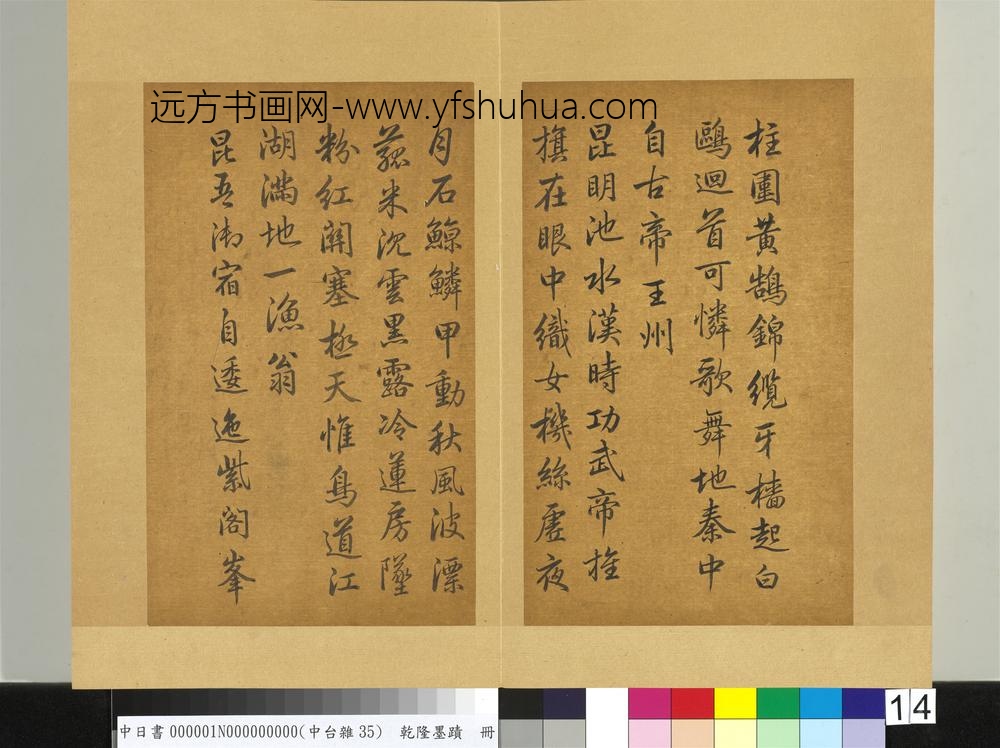 远方书画网-www.yfshuhua.com
柱圍黃鵠錦纜牙檣起白
鷗迴首可憐歌舞地秦中
自古帝王州
昆明池水漢時功武帝旌
旗在眼中織女機絲虛夜
月石鯨鱗甲動秋風波漂
菰米沉雲黑露冷蓮房墜
粉紅關塞極天惟鳥道江
湖滿地一漁翁
昆吾御宿自逶迤紫閣峯
中日書000001N000000000(中台雜35) 乾隆墨蹟 冊
14